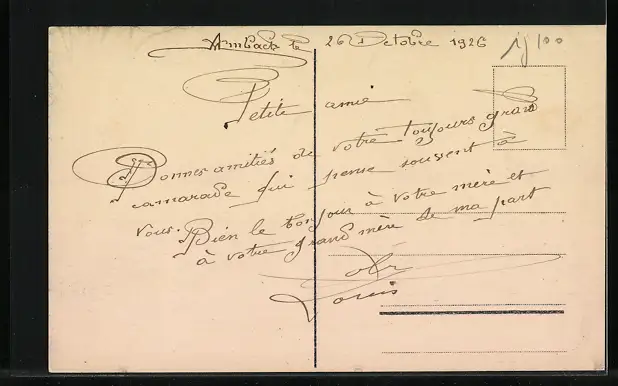 Ambach le 26 Octobre 1926
15/00
Petite amie
Bonnes amitiés de votre toujours grand
camarade qui pense souvent à
vous. Bien le bonjour à votre mère et
à votre grand mère de ma part
Louis